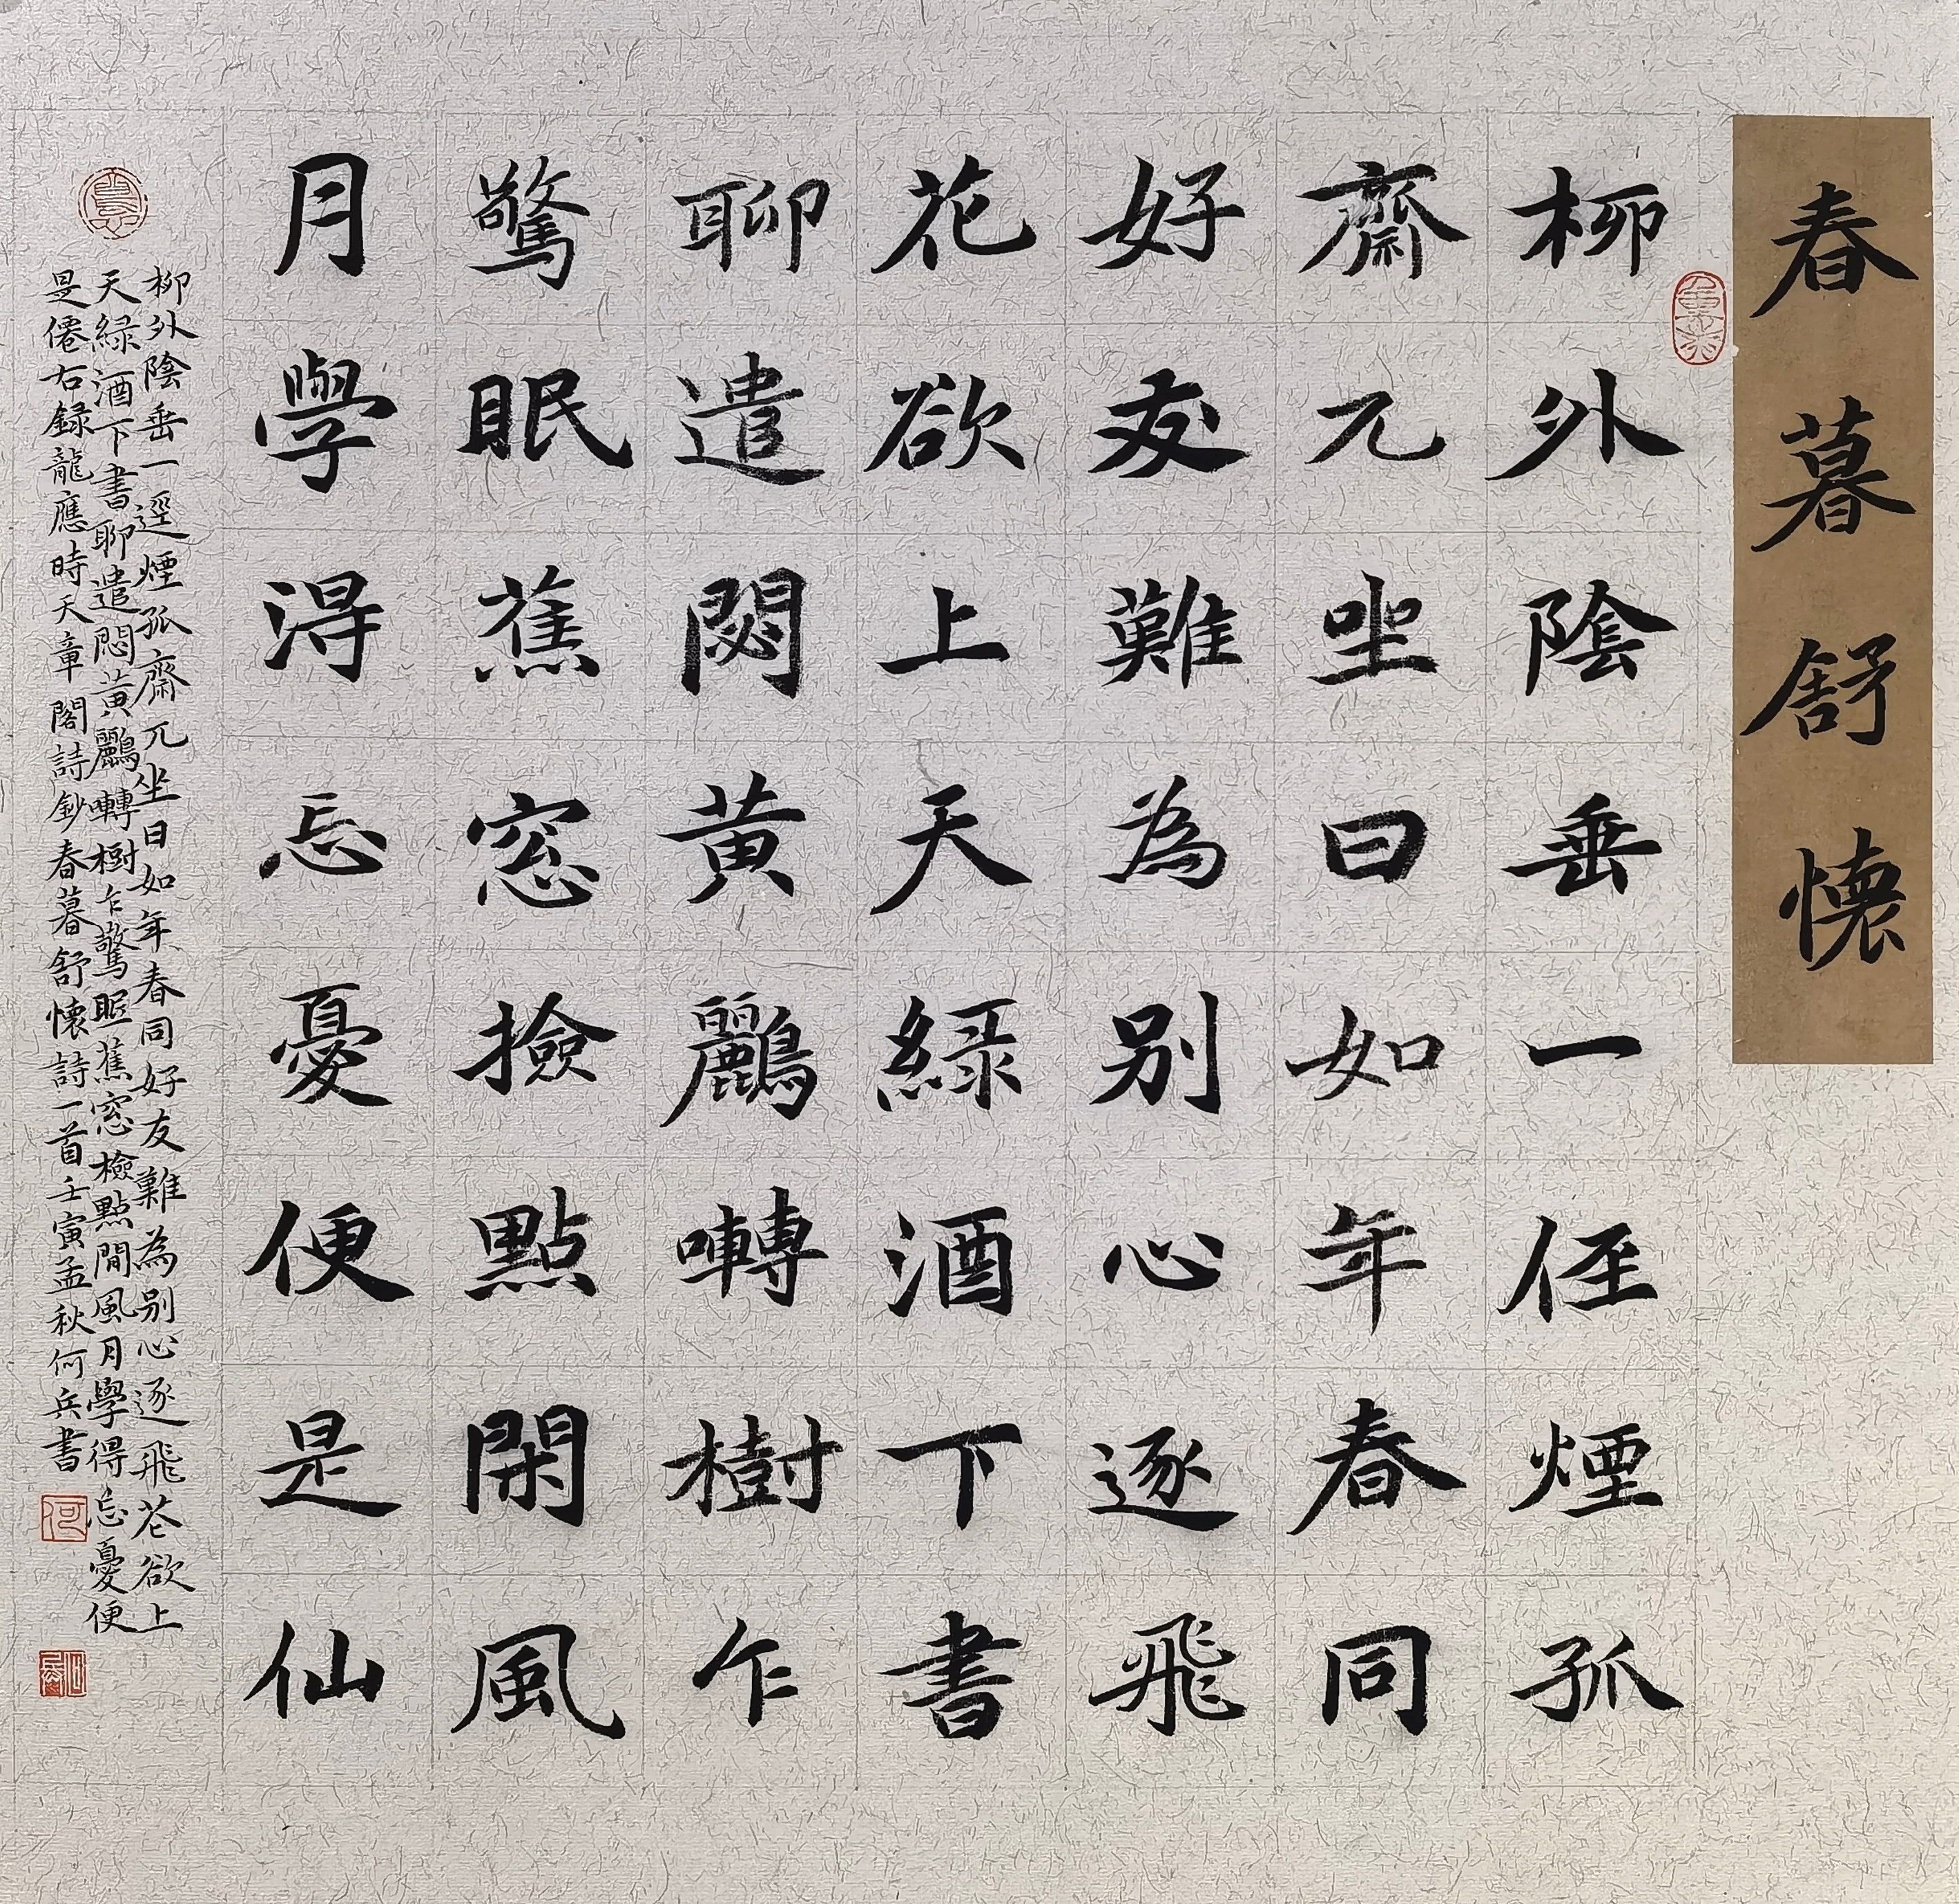 春暮舒懷
柳外陰垂一侄煙孤
齋兀坐日如年春同
好友難為别心逐飛
花欲上天緑酒下書
聊遣悶黄鸝囀樹乍
驚眠蕉窓撿點閑風
月學得忘憂便是仙
柳外陰垂一逕煙孤齋兀坐日如年春同好友難為别心逐飛花欲上
天緑酒下書聊遣悶黄鸝囀樹乍驚眠蕉窓檢點閒風月學得忘憂便
是僊右録龍應時天章閣詩鈔春暮舒懷詩一首壬寅孟秋何兵書
何